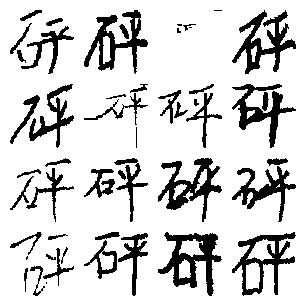 砰 砰 砰
砰 砰 砰 砰
砰 砰 砰 砰
砰 砰 砰 砰